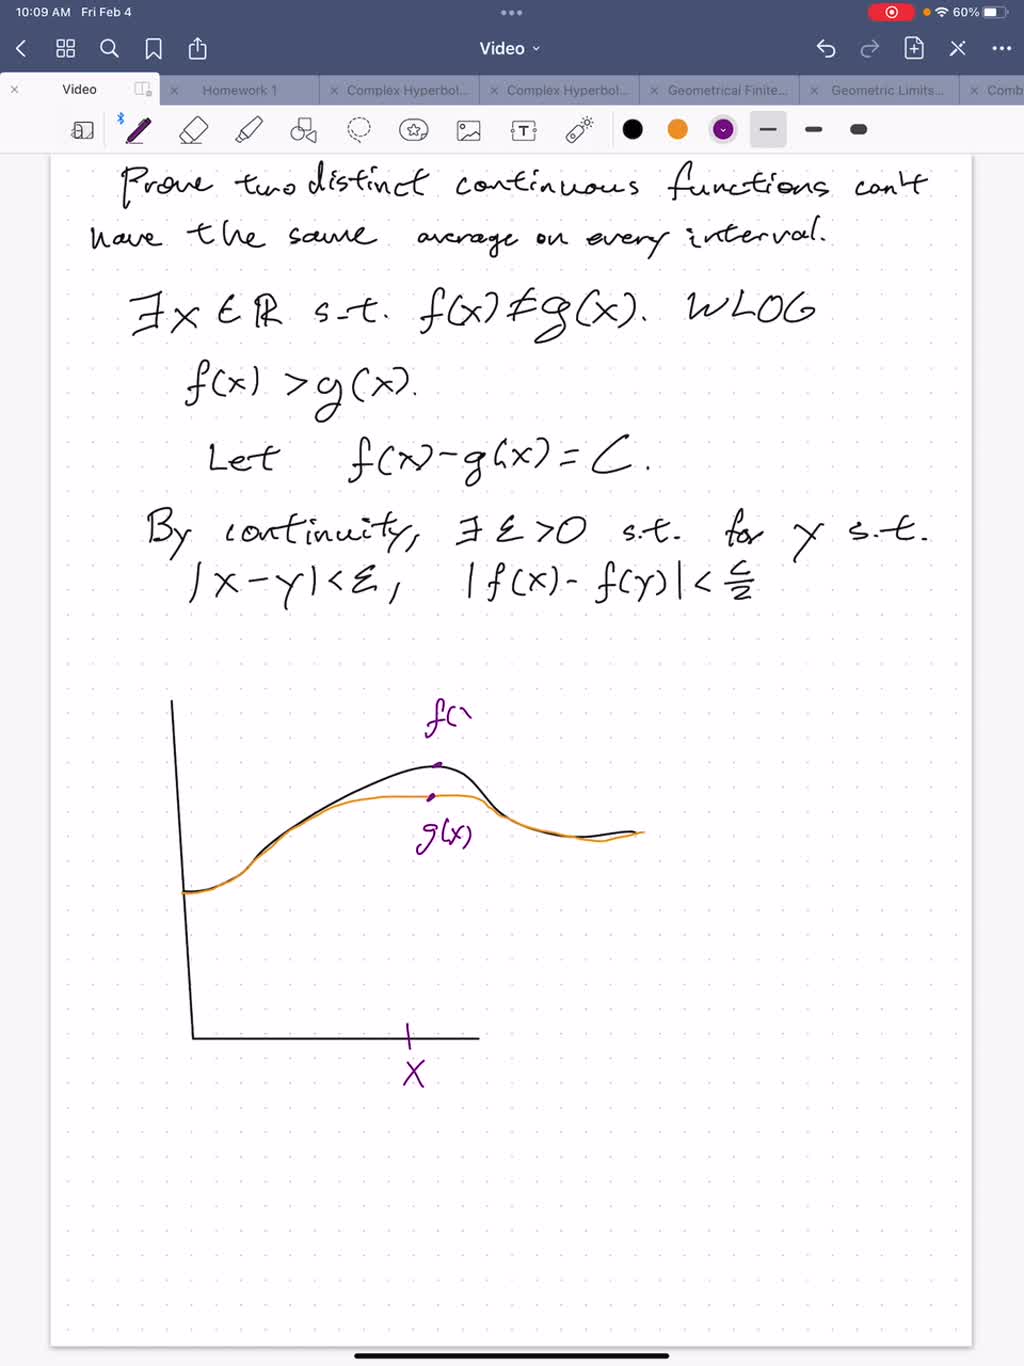 10:09 AM Fri Feb 4
60%
Video
Video
Homework 1
Complex Hyperbol...
Complex Hyperbol...
Geometrical Finite...
Geometric Limits...
Comb
Prove two distinct continuous functions can't
have the same average on every interval.
∃x∈ℝ s.t. f(x)≠g(x). WLOG
f(x) > g(x).
Let f(x)-g(x) = C.
By continuity, ∃ε>0 s.t. for y s.t.
|x-y|<ε, |f(x)-f(y)|<c/2
f(x
g(x)
x